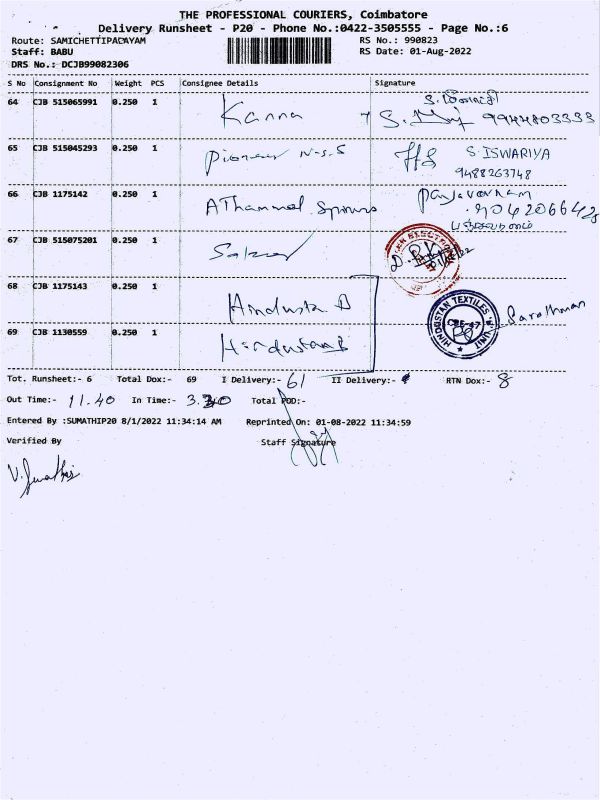 THE PROFESSIONAL COURIERS, Coimbatore
Delivery Runsheet - P20 - Phone No.:0422-3505555 - Page No.:6
Route: SAMICHETTIPALAYAM RS No.: 990823
Staff: BABU RS Date: 01-Aug-2022
DRS No.: DCJB99082306
S No Consignment No Weight PCS Consignee Details Signature
64 CJB 515065991 0.250 1 Kanna 9944803333
65 CJB 515045293 0.250 1 Pioneer N.S.S S.ISWARIYA
9488263748
66 CJB 1175142 0.250 1 AThammal
67 CJB 515075201 0.250 1
68 CJB 1175143 0.250 1 Hindusta
69 CJB 1130559 0.250 1 Hindustan
HINDUSTAN TEXTILES UNIT
Tot. Runsheet:- 6 Total Dox:- 69 I Delivery:- 61 II Delivery:- RTN Dox:- 8
Out Time:- 11.40 In Time:- Total POD:-
Entered By :SUMATHIP20 8/1/2022 11:34:14 AM Reprinted On: 01-08-2022 11:34:59
Verified By Staff Signature